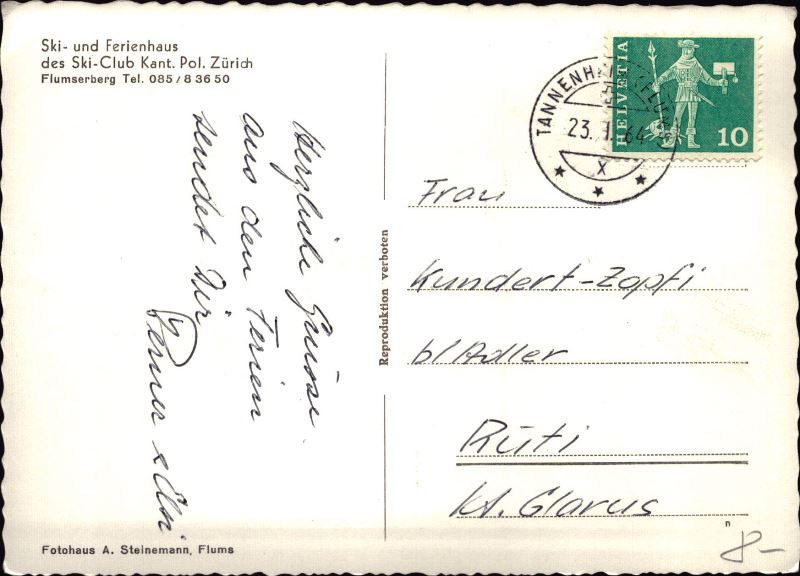 Ski- und Ferienhaus
des Ski-Club Kant. Pol. Zürich
Flumserberg Tel. 085 / 8 36 50
Herzliche Grüsse
aus den Ferien
sendet Dir
Reproduktion verboten
TANNENH
23. 1. 64
X
HELVETIA
10
Frau
Kundert-Zopfi
b/ Adler
Rüti
Kt. Glarus
n
8.-
Fotohaus A. Steinemann, Flums